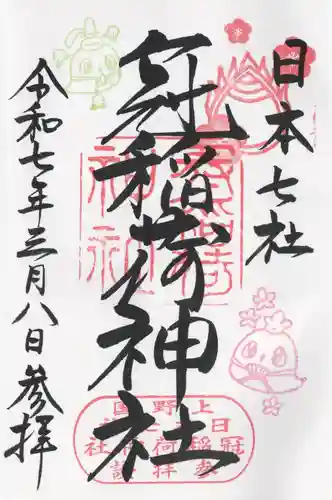 日本七社
冠稲荷神社
令和七年三月八日参拝
冠稲荷神社
上野国
日本七社
冠稲荷
参拝記